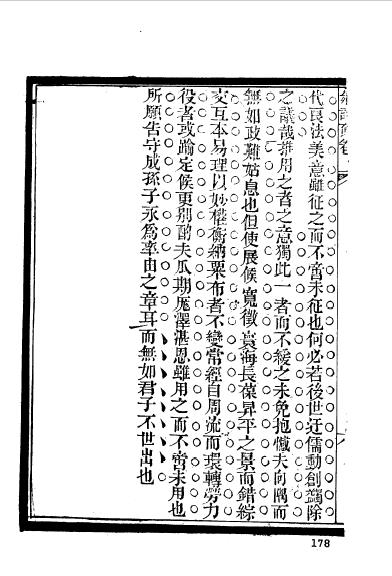 代良法美意雖征之而不啻未征也何必若後世迂儒動創蠲除
之議哉推用之者之意獨此一者而不緩之未免抱慨夫向隅而
無如政難姑息也但使展候寬徵寰海長葆昇平之景而錯綜
交互本易理以妙權衡納粟布者不變常經自周流而環轉勞力
役者或踰定候更別酌夫瓜期厖澤湛恩雖用之而不啻未用也
所願告守成孫子永爲率由之章耳而無如君子不世出也
178